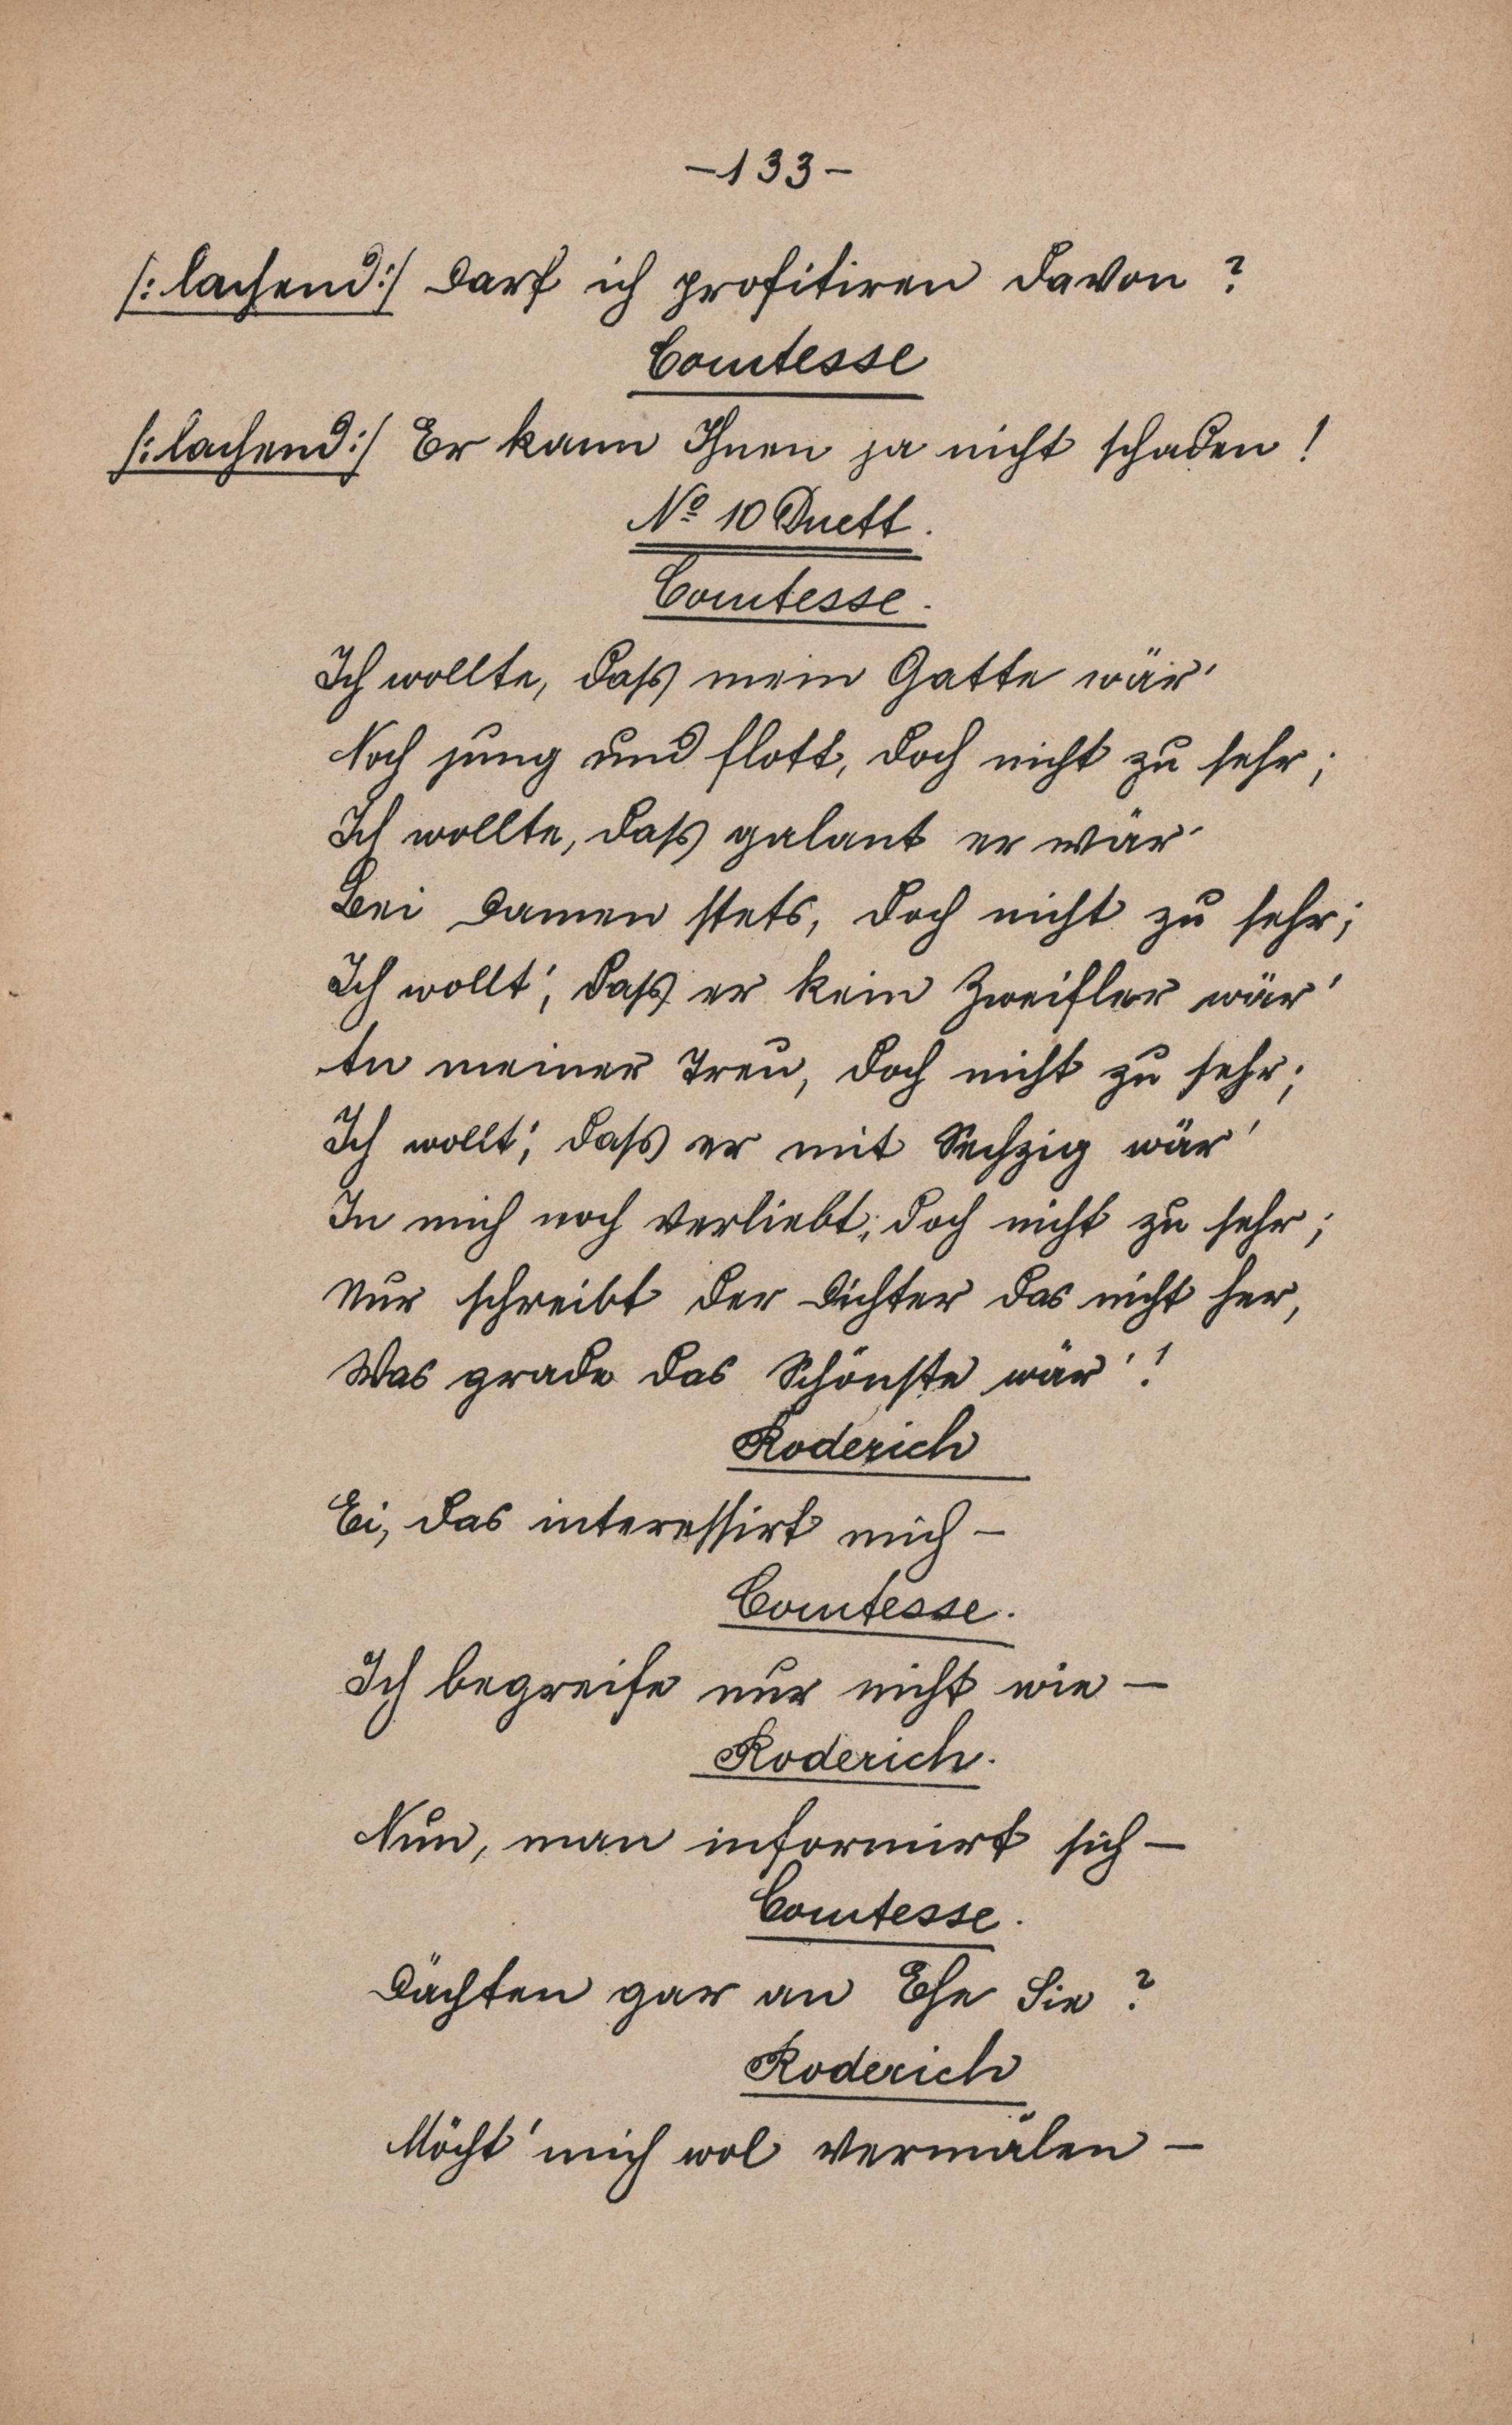 -133-
/:lachend:/ Darf ich profitiren davon?
Comtesse
/:lachend:/ Er kann Ihnen ja nicht schaden!
No 10 Duett.
Comtesse.
Ich wollte, dass mein Gatte wär'
Noch jung und flott, doch nicht zu sehr;
Ich wollte, dass galant er wär'
Bei Damen stets, doch nicht zu sehr;
Ich wollt', dass er kein Zweifler wär'
An meiner Treu, doch nicht zu sehr;
Ich wollt', dass er mit Sechzig wär'
In mich noch verliebt, doch nicht zu sehr;
Nur schreibt der Dichter das nicht her,
Was grade das Schönste wär'!
Roderich
Ei, das interessirt mich –
Comtesse.
Ich begreife nur nicht wie –
Roderich.
Nun, man informirt sich –
Comtesse.
Dächten gar an Ehe Sie?
Roderich
Möcht' mich wol vermälen –